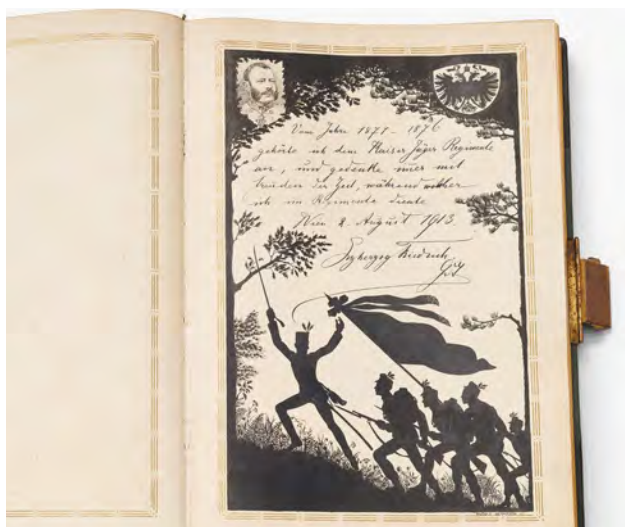 Vom Jahre 1871 - 1876
gehörte ich dem Kaiser Jäger Regimente
an, und gedenke immer mit
Freuden der Zeit, während welcher
ich im Regimente diente
Wien 2. August 1913.
Erzherzog Friedrich